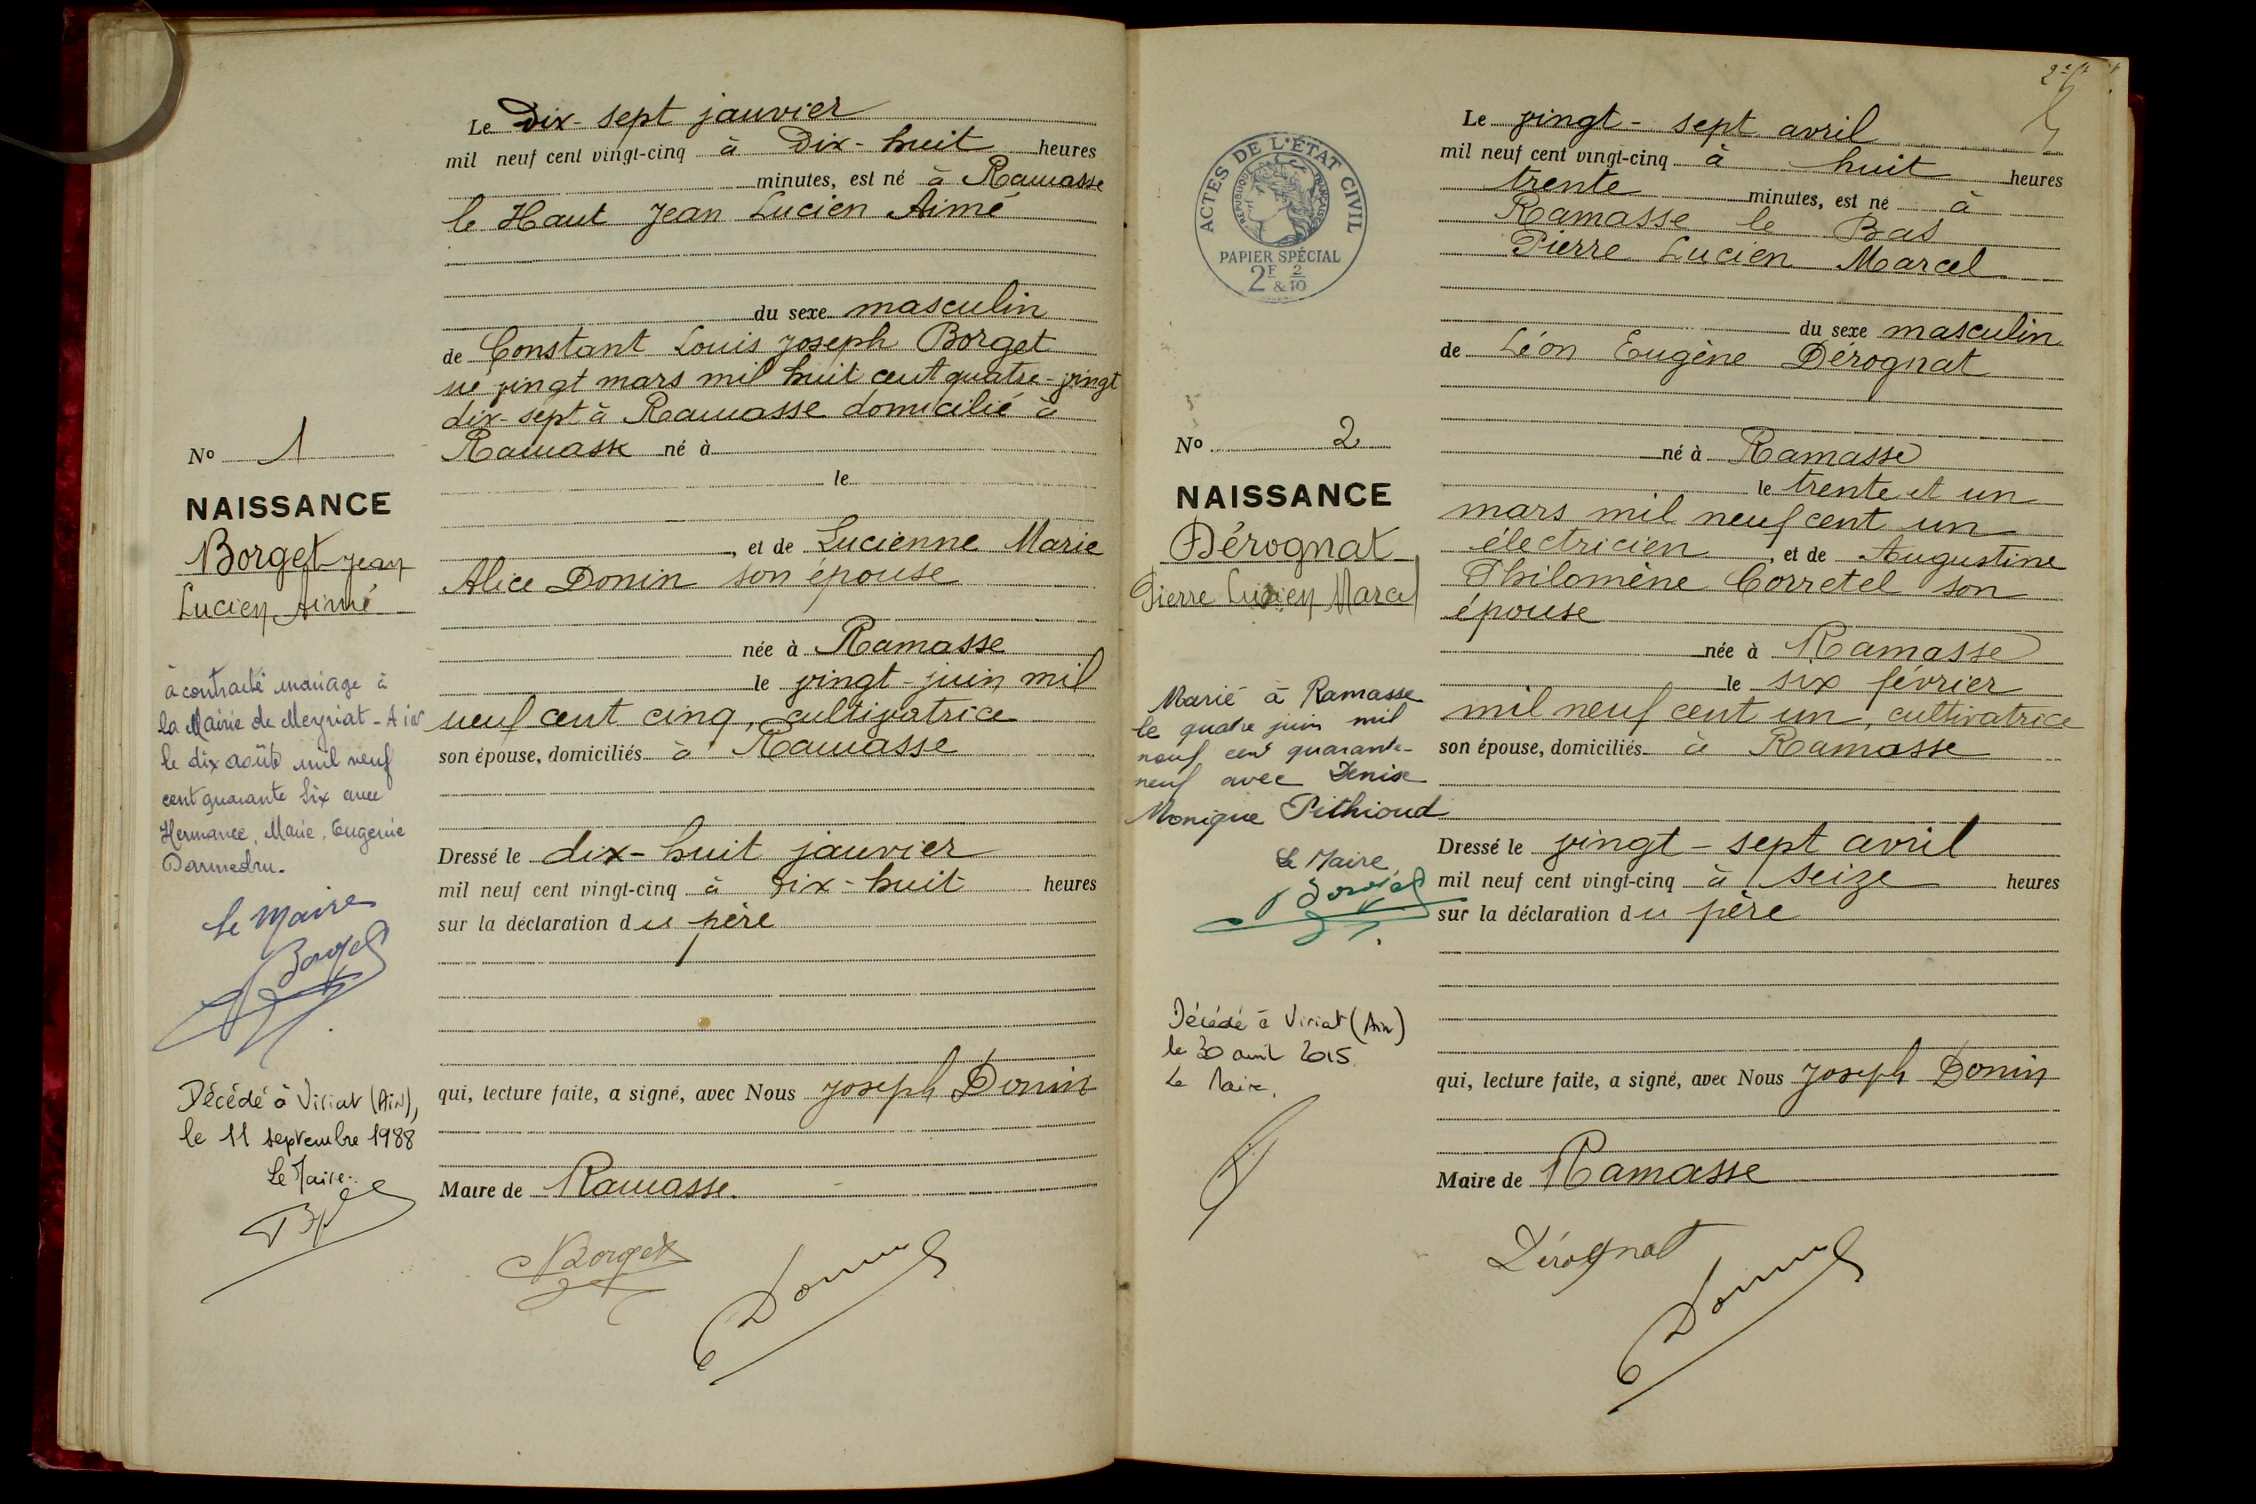 Le Dix-sept janvier
mil neuf cent vingt-cinq à Dix-huit heures
minutes, est né à Ramasse
le Haut Jean Lucien Aimé
du sexe masculin
de Constant Louis Joseph Borget
né vingt mars mil huit cent quatre-vingt
dix-sept à Ramasse domicilié à
Ramasse né à
le
, et de Lucienne Marie
Alice Donin son épouse
née à Ramasse
le vingt-juin mil
neuf cent cinq, cultivatrice
son épouse, domiciliés à Ramasse
Dressé le dix-huit janvier
mil neuf cent vingt-cinq à dix-huit heures
sur la déclaration du père
qui, lecture faite, a signé, avec Nous Joseph Donin
Maire de Ramasse.
Borget
Donin
No 1
NAISSANCE
Borget Jean
Lucien Aimé
à contracté mariage à
la Mairie de Meyriat-Ain
le dix août mil neuf
cent quarante six avec
Hermance, Marie, Eugénie
Darmedru.
Le Maire
Borget
Décédé à Viriat (Ain),
le 11 septembre 1988
Le Maire.
ACTES DE L'ÉTAT CIVIL
RÉPUBLIQUE FRANÇAISE
PAPIER SPÉCIAL
2F & 2/10
Le vingt-sept avril
mil neuf cent vingt-cinq à huit heures
trente minutes, est né à
Ramasse le Bas
Pierre Lucien Marcel
du sexe masculin
de Léon Eugène Dérognat
né à Ramasse
le trente et un
mars mil neuf cent un
électricien, et de Augustine
Philomène Corretel son
épouse
née à Ramasse
le six février
mil neuf cent un, cultivatrice
son épouse, domiciliés à Ramasse
Dressé le vingt-sept avril
mil neuf cent vingt-cinq à seize heures
sur la déclaration du père
qui, lecture faite, a signé, avec Nous Joseph Donin
Maire de Ramasse
Dérognat
Donin
No 2
NAISSANCE
Dérognat
Pierre Lucien Marcel
Marié à Ramasse
le quatre juin mil
neuf cent quarante-
neuf avec Denise
Monique Pithioud
Le Maire
Borget
Décédé à Viriat (Ain)
le 30 avril 2015
Le Maire.